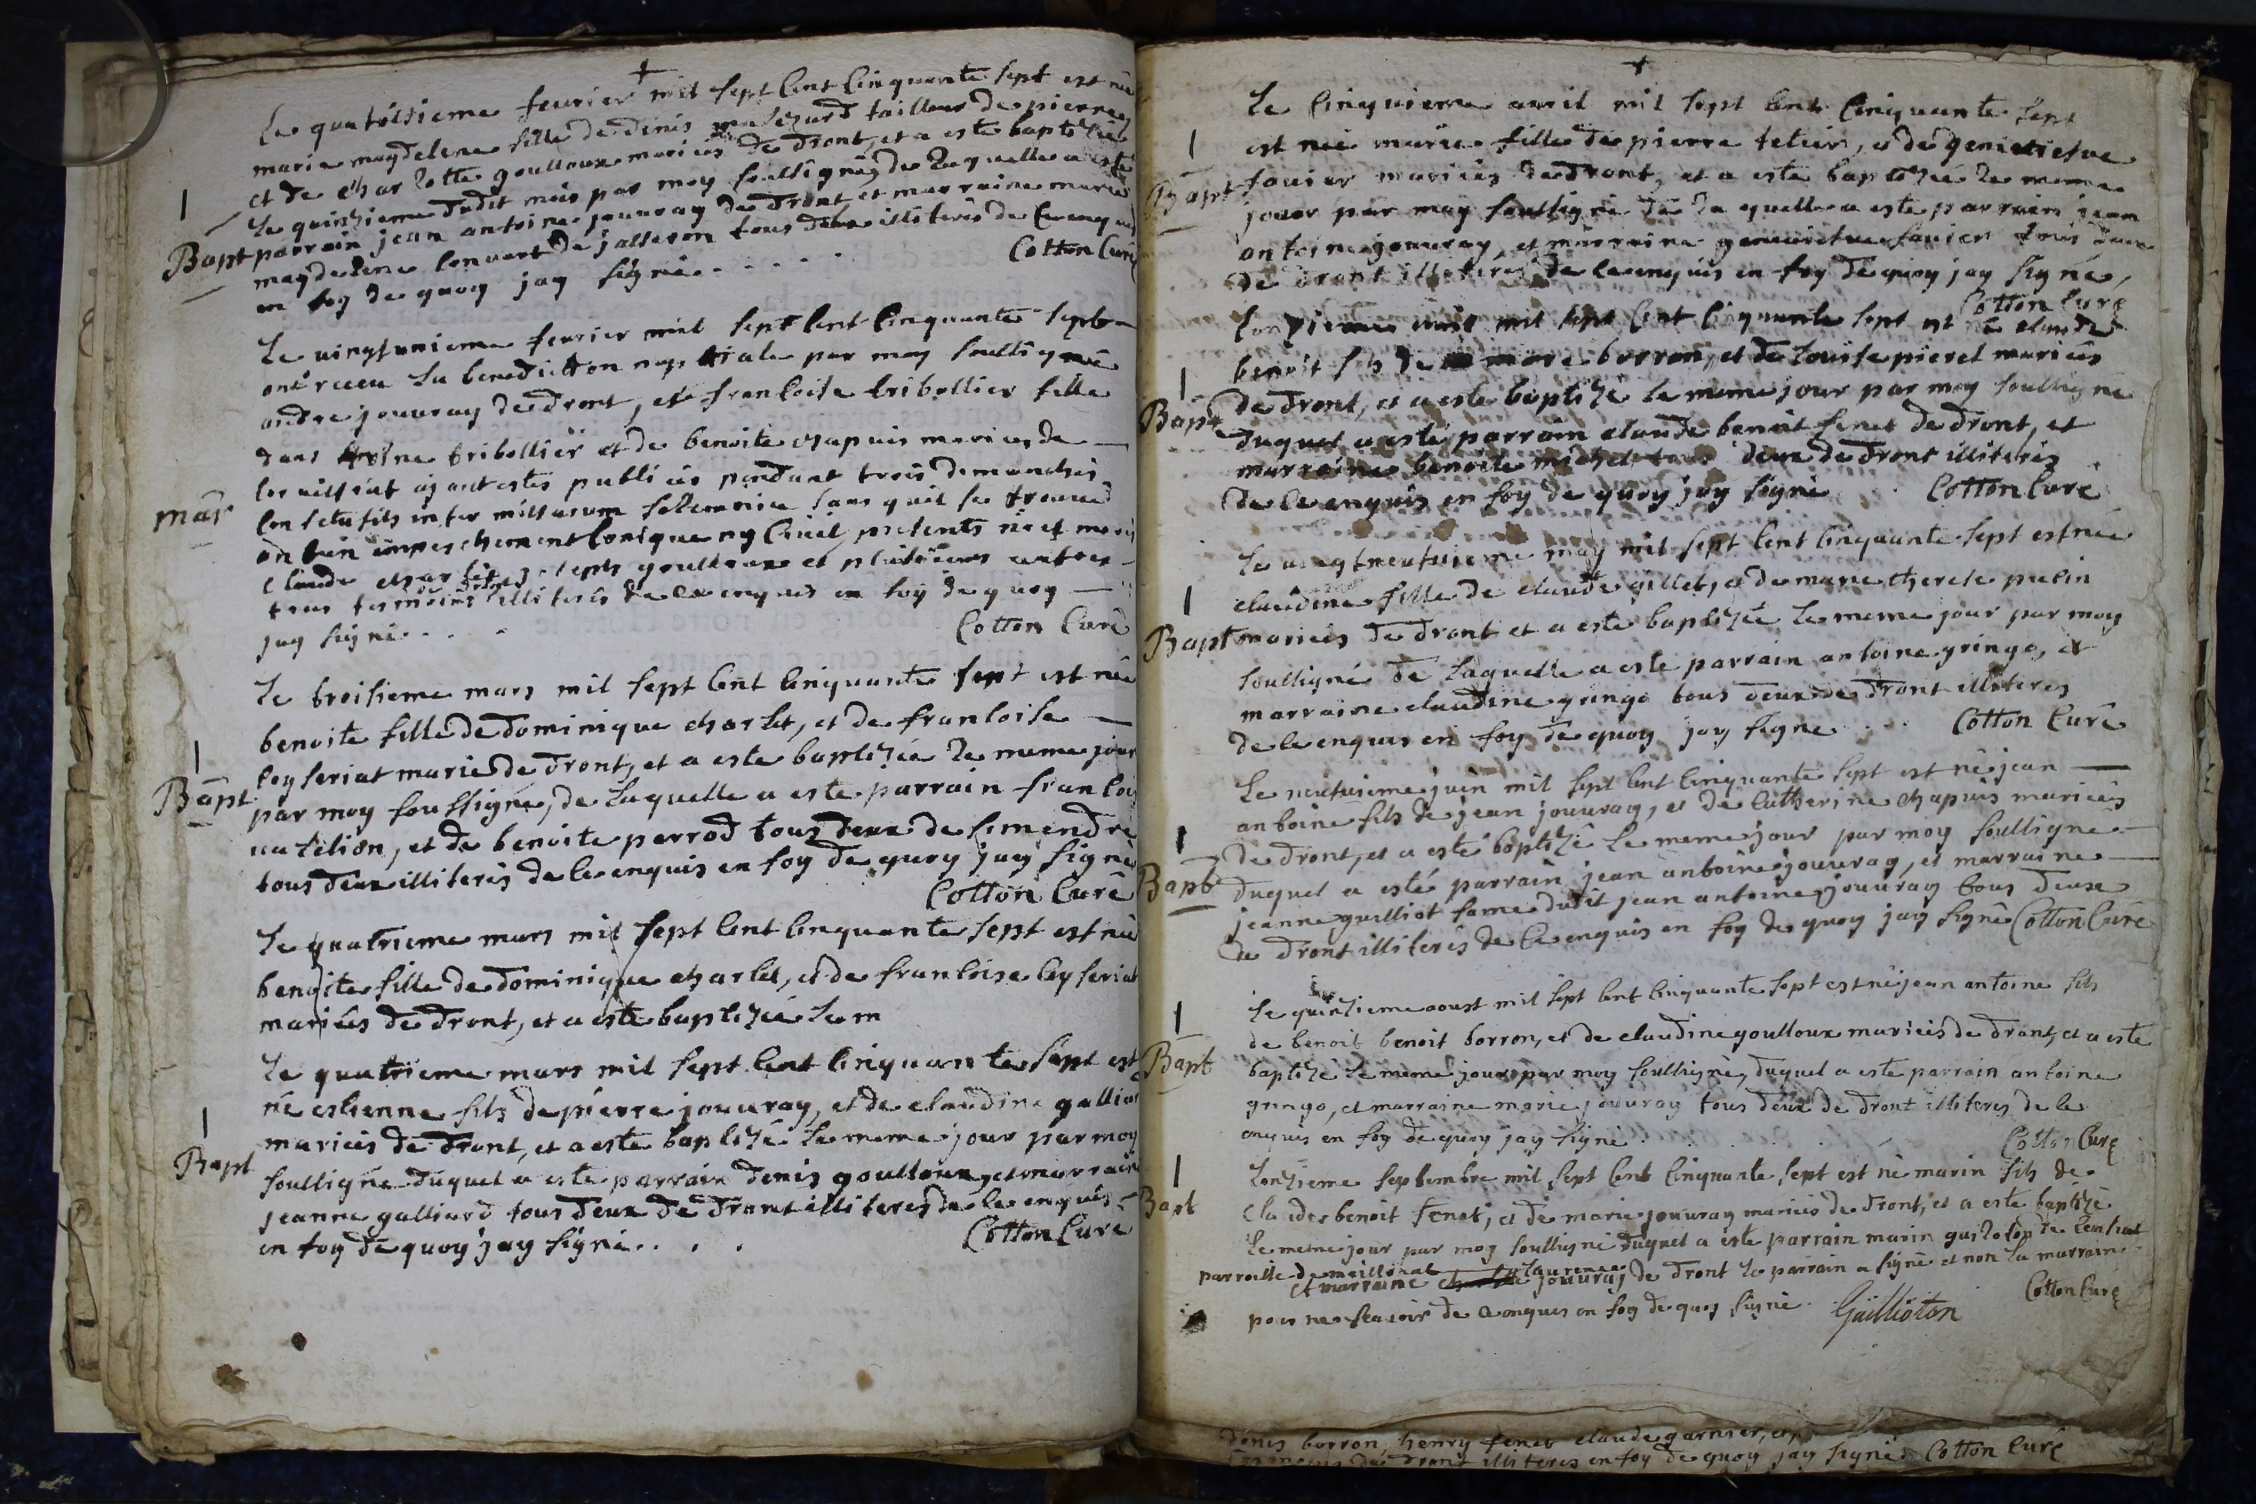 Le quatorsieme feurier mil sept cent cinquante sept est née
marie magdelene fille de denis malezard tailleur de pierres
et de charlotte goulloux mariés de dront, et a este baptizée
Le quinzieme dudit mois par moy soussigné, de laquelle a este
Bapt parrain jean antoine jouuray de dront et marraine marie
magdelene conuert de jasseron tous deux illiterés de ce enquis
en foy de quoy jay signé. Cotton Curé
Le uingtunieme feurier mil sept cent cinquante sept
ont receu la benediction nuptiale par moy soussigné
andre jouuray de dront, et francoise tribollier fille
dant tribollier et de benoite chapuis mariés de
ceissiat ayant estes publiés pendant trois dimanches
mar consecutifs inter missarum solemnia sans quil se trouue
aucun impeschement canonique ny ciuil, presents
Claude charlet, goulloux et plusieurs autres
tous temoins illiterés de ce enquis en foy de quoy
jay signé. Cotton Curé
Le troisieme mars mil sept cent cinquante sept est née
benoite fille de dominique charlet, et de francoise
ceyseriat mariés de dront, et a este baptizée le meme jour
Bapt par moy soussigné, de laquelle a este parrain francois
uatelion, et de benoite perrod tous deux de cimendre
tous deux illiterés de ce enquis en foy de quoy jay signé
Cotton Curé
Le quatrieme mars mil sept cent cinquante sept est née
benoite fille de dominique charlet, et de francoise ceyseriat
mariés de dront, et a este baptizée le m
Le quatrieme mars mil sept cent cinquante sept est
né estienne fils de pierre jouuray, et de claudine galliard
mariés de dront, et a este baptizé le meme jour par moy
Bapt soussigné duquel a este parrain denis goulloux, et marraine
jeanne galliard tous deux de dront illiterés de ce enquis
en foy de quoy jay signé. Cotton Curé
Le cinquieme auril mil sept cent cinquante sept
est née marie fille de pierre tetier, et de genieuieue
Bapt fauier mariés de dront, et a este baptizée le meme
jour par moy soussigné de laquelle a este parrain jean
antoine jouuray, et marraine genieuieue fauier tous deux
de dront illiterés de ce enquis en foy de quoy jay signé,
Cotton Curé
Lonzieme auril mil sept cent cinquante sept est né claude
benoit fils de marc borron, et de Louise pieret mariés
Bapt de dront, et a este baptizé le meme jour par moy soussigné
duquel a esté parrain claude benoit fenet de dront, et
marraine benoite michel tous deux de dront illiterés
de ce enquis en foy de quoy jay signé Cotton Curé
Le may mil sept cent cinquante sept est née
claudine fille de claude gillet, et de marie therese putin
Bapt mariés de dront et a este baptizée le meme jour par moy
soussigné de laquelle a este parrain antoine gringo, et
marraine claudine gringo tous deux de dront illiteres
de ce enquis en foy de quoy jay signé Cotton Curé
Le neufuieme juin mil sept cent cinquante sept est né jean
antoine fils de jean jouuray, et de catherine chapuis mariés
de dront, et a esté baptizé le meme jour par moy soussigné
Bapt duquel a esté parrain jean antoine jouuray, et marraine
jeanne guilliot fame dudit jean antoine jouuray tous deux
de dront illiterés de ce enquis en foy de quoy jay signé Cotton Curé
Le quinzieme aoust mil sept cent cinquante sept est né jean antoine fils
de benoit benoit borron, et de claudine goulloux mariés de dront, et a este
Bapt baptizé le meme jour par moy soussigné, duquel a este parrain antoine
gringo, et marraine marie jouuray tous deux de dront illiteres de ce
enquis en foy de quoy jay signé. Cotton Curé
Lonzieme septembre mil sept cent cinquante sept est né marin fils de
Bapt Claude benoit fenet, et de marie jouuray mariés de dront, et a este baptizé
Le meme jour par moy soussigné duquel a este parrain marin de
parroisse de meillonat et marraine laurence jouuray de dront le parrain a signé et non la marraine
pour ne scauoir de ce enquis en foy de quoy signé. Gaillioton Cotton Curé
denis borron, henry fenet claude garnier,
de dront illiteres en foy de quoy jay signé Cotton Curé